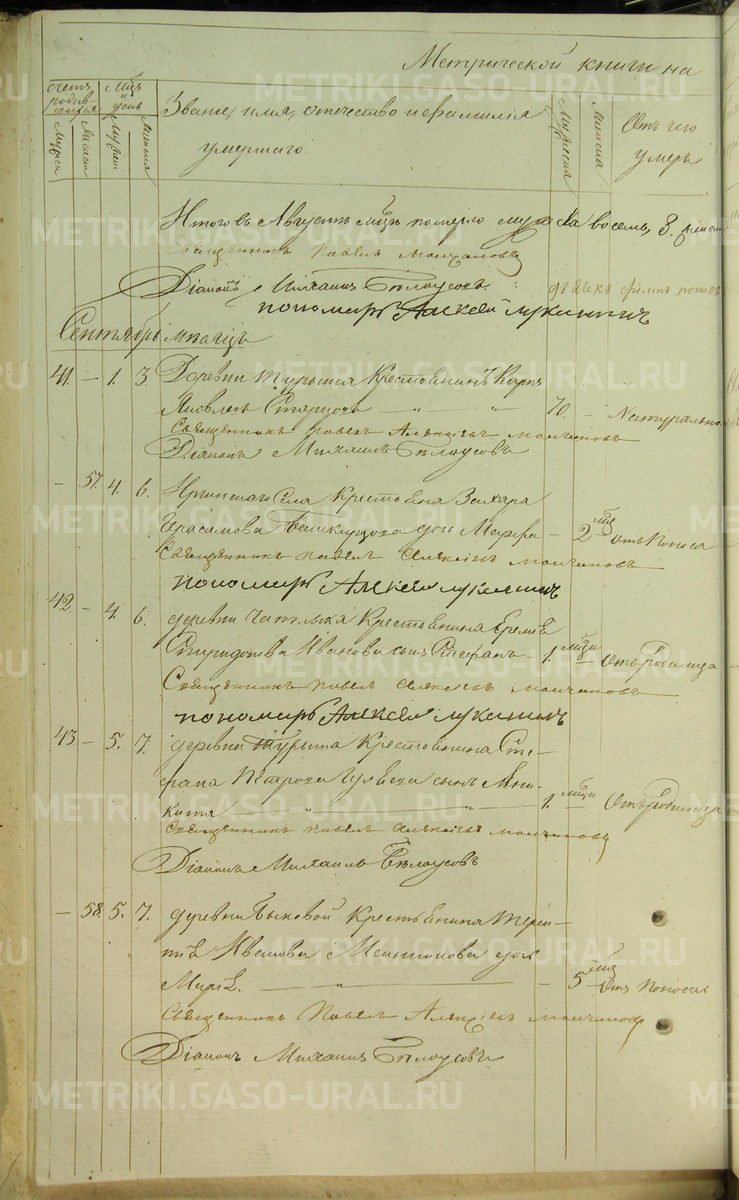 Метрической книги на
Счетъ родив-шихся
Мцъ и день
Званіе, имя, отечество и фамилія умершаго.
Отъ чего умеръ
Мужска
Женска
Итого въ Августѣ мцѣ померло мужска восемь, 8.
Священникъ Павелъ Молчановъ
Діаконъ Михаилъ Бѣлоусовъ.
пономарь Алексей Лукинъ
Сентябрь мѣсяцъ
41. — 1. 3 Деревни Турыша Крестьянинъ Карпъ
Яковлевъ Старцовъ 70. —
Священникъ Павелъ Алексіевъ Молчановъ
Діаконъ Михаилъ Бѣлоусовъ
— 57. 4. 6. Иргинскаго Села Крестьяна Захара
Герасимова дочь Марфа — 2 мцъ отъ Поноса
Священникъ Павелъ Алексіевъ Молчановъ
пономарь Алексей Лукинъ
42 — 4. 6. деревни Чатлыка Крестьянина Еремѣя
Спиридонова Иванова сынъ Стефанъ 1. мцъ — отъ Родимца
Священникъ Павелъ Алексіевъ Молчановъ
пономарь Алексей Лукинъ
43 — 5. 7. деревни Турыша Крестьянина Сте-
фана Петрова Гуляева сынъ Ани-
кита 1. мцъ отъ Родимца
Священникъ Павелъ Алексіевъ Молчановъ
Діаконъ Михаилъ Бѣлоусовъ
— 58. 5. 7. деревни Быковой Крестьянина
Иванова дочь
— 5 мцъ отъ Поноса
Священникъ Павелъ Алексіевъ Молчановъ
Діаконъ Михаилъ Бѣлоусовъ.
METRIKI.GASO-URAL.RU